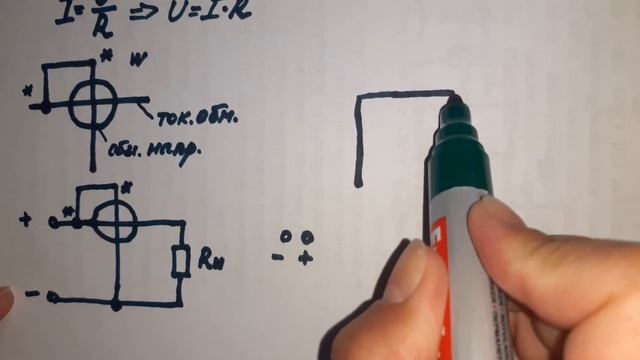 I = U/R ⇒ U = I·R
* W
*
ток. обм.
обм. напр.
*
+ *
Rн
- +
-